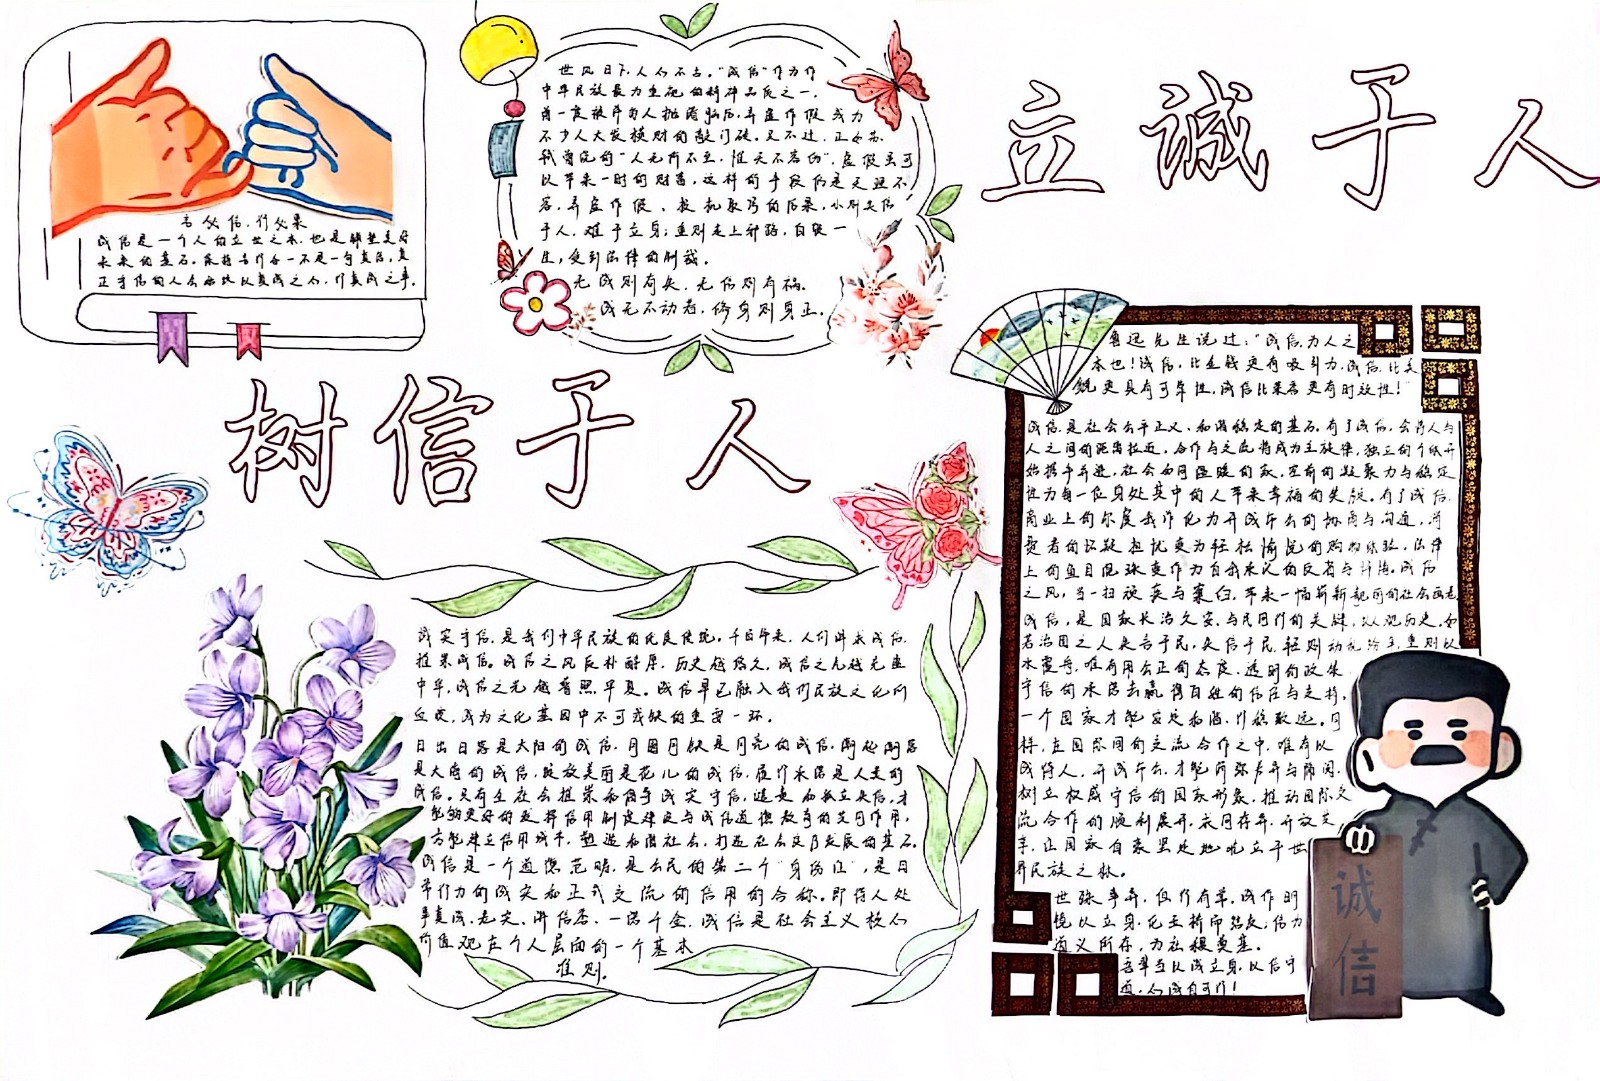 立诚于人
树信于人
言必信,行必果
诚信是一个人的立世之本,也是
未来的基石。
正守信的人会始终以真诚之心,行真诚之事。
世风日下,人心不古。"诚信"作为作
中华民族最为重视的精神品质之一,
曾一度被许多人抛诸脑后,弄虚作假成为
不少人大发横财的敲门砖。又不过,正如苏
轼曾说的"人无所不至,惟天不容伪",虚假虽可
以带来一时的财富,这样的手段仍是天理不
容,弄虚作假、投机取巧的后果,小则失信
于人,难于立身;重则走上邪路,自毁一
生,受到法律的制裁。
无诚则有失,无信则有祸。
诚无不动者,修身则身正。
鲁迅先生说过:"诚信为人之
本也!诚信,比金钱更有吸引力,诚信,比美
貌更具有可靠性,诚信比荣誉更有时效性!"
诚信,是社会公平正义、和谐稳定的基石,有了诚信,会将人与
人之间的距离拉近,合作与交流将成为主旋律,独立的个体开
始携手并进,社会如同温暖的家,空前的凝聚力与稳定
性为每一位身处其中的人带来幸福的生活。有了诚信,
商业上的尔虞我诈化为开诚布公的协商与沟通,消
费者的怀疑担忧变为轻松愉悦的购物体验,法律
上的鱼目混珠变作为自我承认的反省与忏悔。诚信
之风,当一扫欺英与窠臼,带来一幅崭新靓丽的社会画卷
诚信,是国家长治久安、与民同行的关键,以观历史,如
若治国之人失言于民,失信于民,轻则动乱纷争,重则以
水覆舟,唯有用公正的态度、透明的政策、
守信的承诺去赢得百姓的信任与支持,
一个国家才能安定和谐,行稳致远。同
样,在国际间的交流合作之中,唯有以
诚待人,开诚布公,才能消弥弃与隔阂,
树立权威守信的国家形象,推动国际交
流合作的顺利展开,求同存异,开放共
享,让国家自豪坚定地屹立于世
界民族之林。
世殊事异,但行有常,诚作明
镜以立身,化玉折而铭忘,信为
道义所存,为社稷奠基。
吾辈当以诚立身,以信守
道,心诚自可行!
诚实守信,是我们中华民族的优良传统。千百年来,人们讲求诚信,
推崇诚信。诚信之风质朴醇厚,历史越悠久,诚信之气越充盈
中华,诚信之光越普照华夏。诚信早已融入我们民族文化的
血液,成为文化基因中不可或缺的重要一环。
日出日落是太阳的诚信,月圆月缺是月亮的诚信,潮起潮落
是大海的诚信,绽放美丽是花儿的诚信,履行承诺是人类的
诚信。只有全社会推崇和信守诚实守信,谴责和孤立失信,才
能够更好的发挥信用制度建设与诚信道德教育的共同作用,
方能建立信用城市,塑造和谐社会,打造社会交良发展的基石。
诚信是一个道德范畴,是公民的第二个"身份证",是日
常行为的诚实和正式交流的信用的合称。即待人处
事真诚、老实、讲信誉、一诺千金,诚信是社会主义核心
价值观在个人层面的一个基本
准则。
诚信